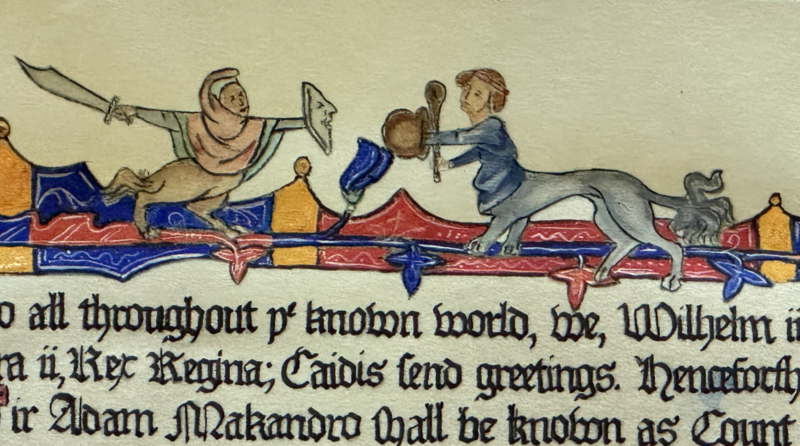 o all throughout yᵉ known world, we, Wilhelm ii
ra ii, Rex Regina; Caidis send greetings. Henceforth
ir Adam Makandro shall be known as Count